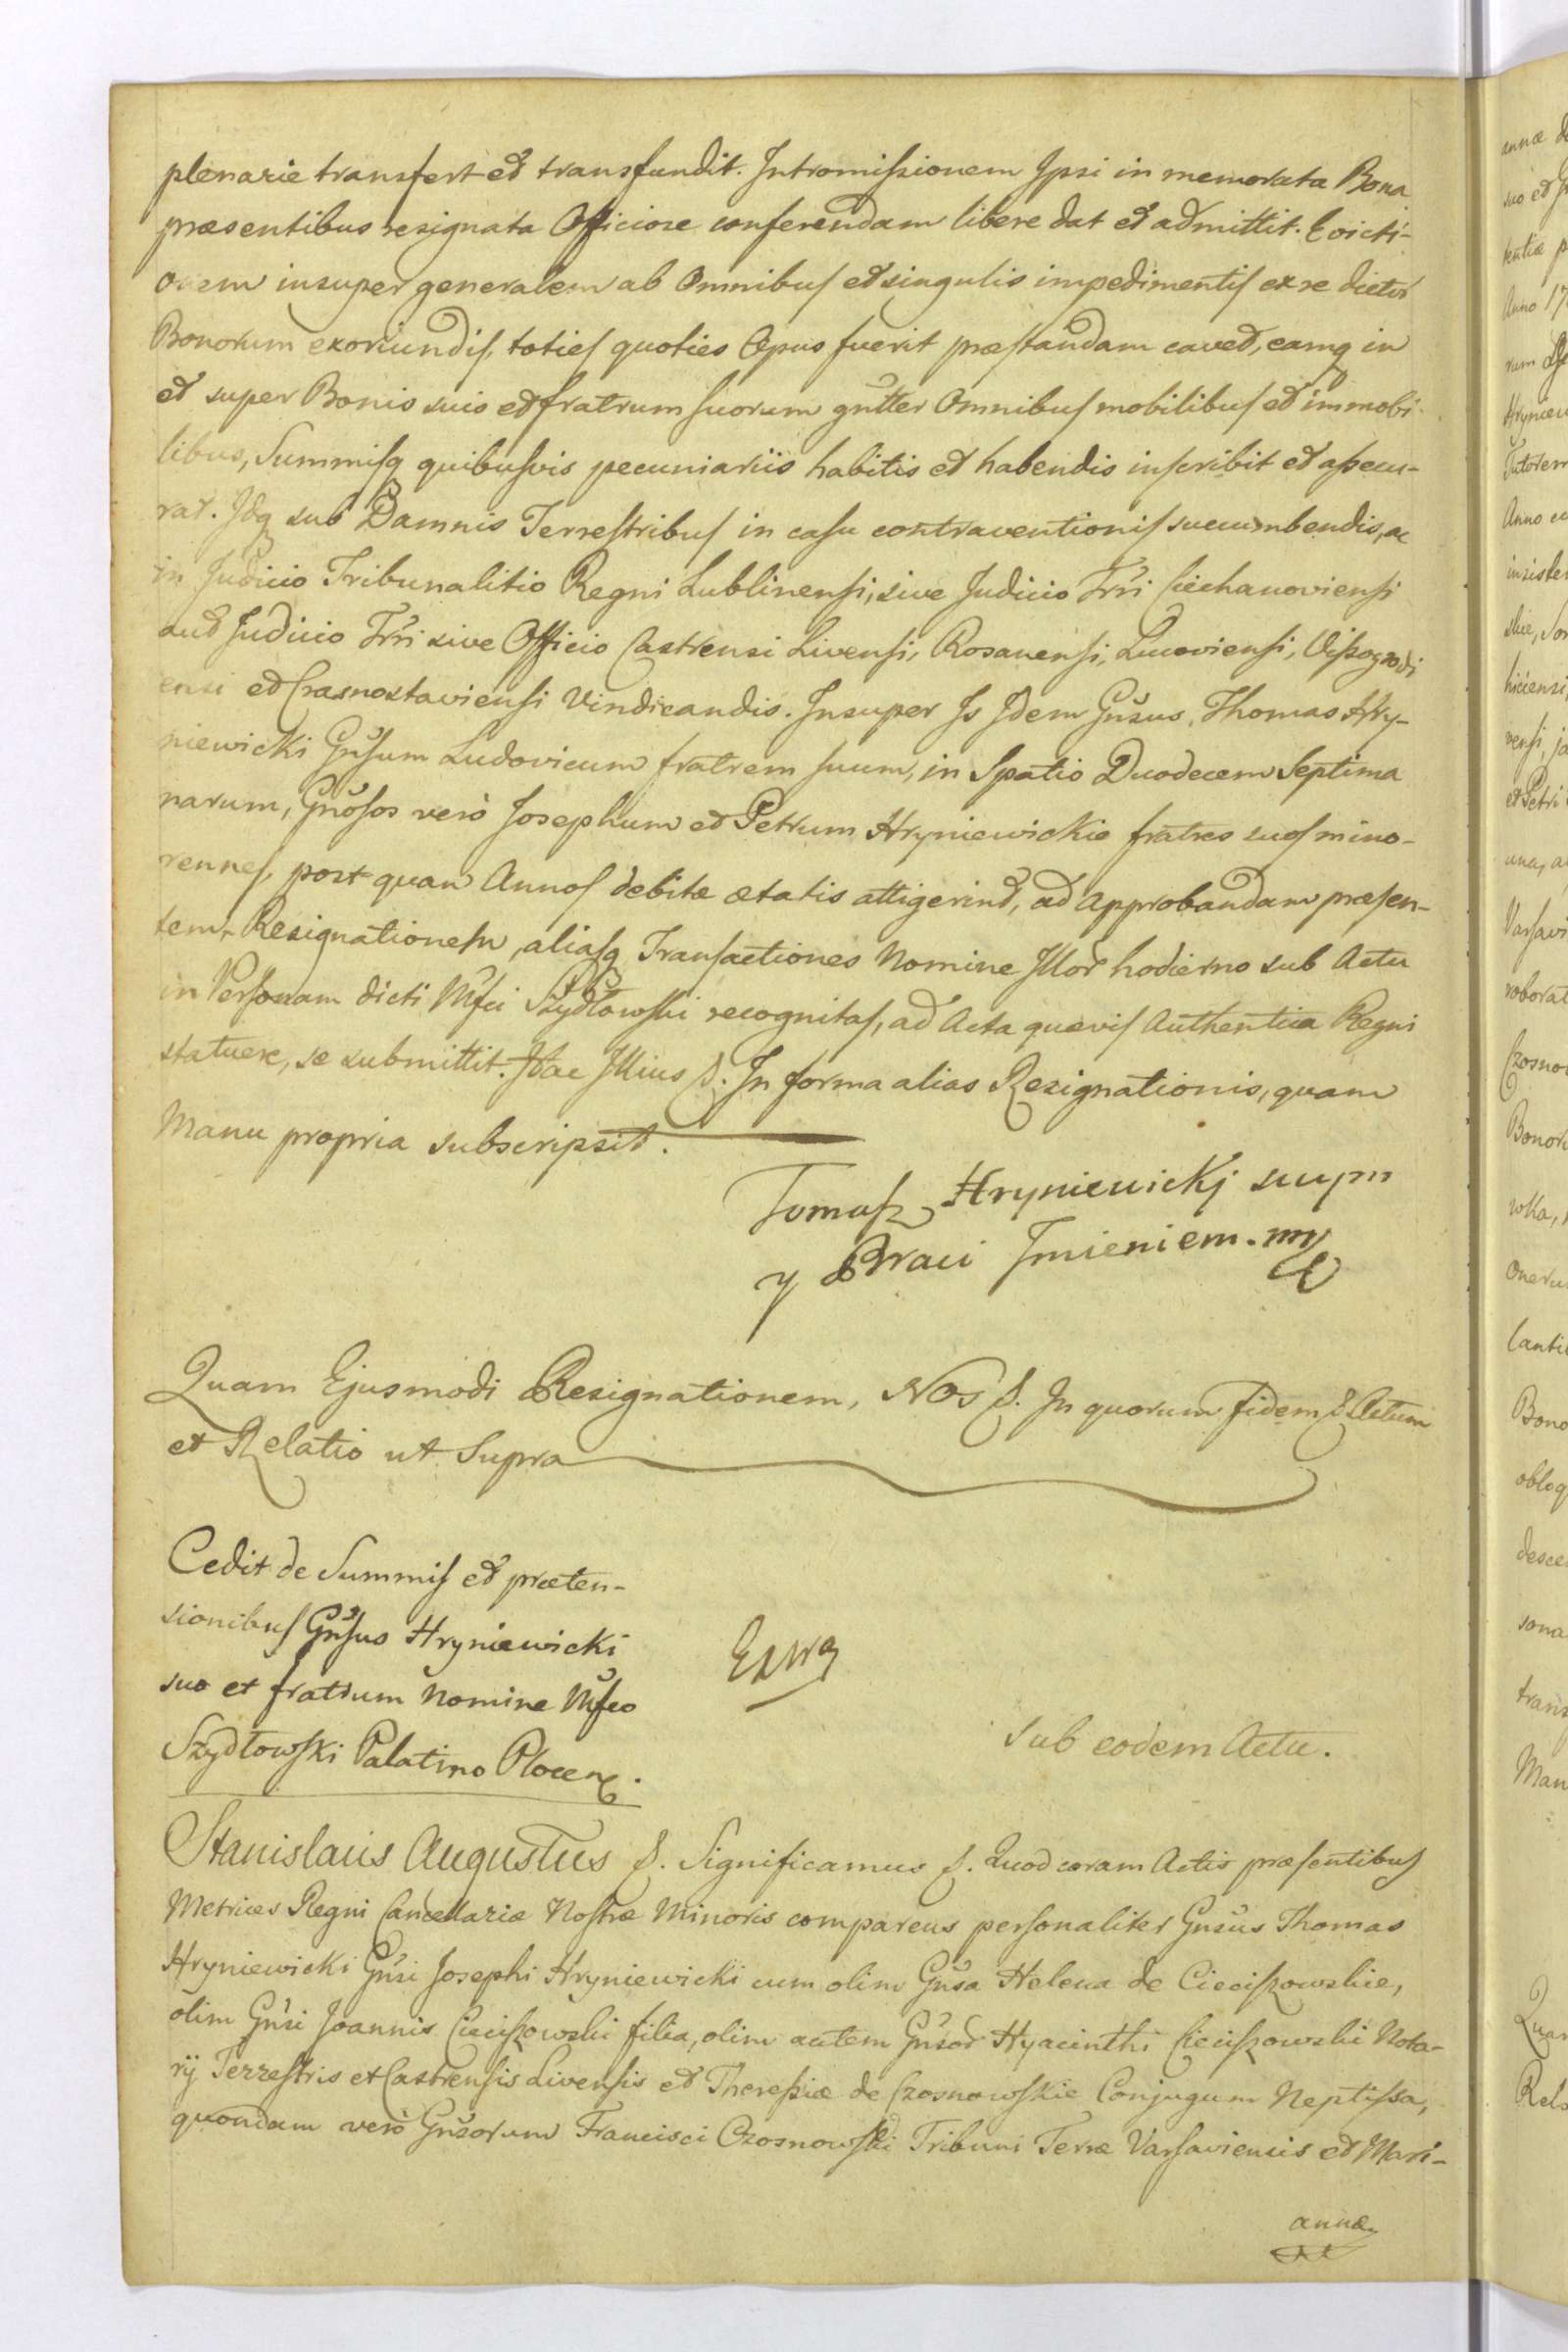 plenarie transfert et transfundit. Intromissionem Ipsi in memorata Bona
præsentibus resignata Officiose conferendam libere dat et admittit. Evicti-
onem insuper generalem ab Omnibus et singulis impedimentis ex re dictor
Bonorum exoriundis, toties quoties Opus fuerit præstandam caved, eamq in
et super Bonis suis et fratrum suorum gnrlter Omnibus mobilibus et immobi-
libus, Summisq quibusvis pecuniariis habitis et habendis inscribit et assecu-
rat. Idq sub Damnis Terrestribus in casu contraventionis succumbendis, ac
in Judicio Tribunalitio Regni Lublinensi, sive Judicio Trri Ciechanoviensi
aut Judicio Trri sive Officio Castrensi Livensi, Rosanensi, Lucoviensi, Vissogrodi
ensi et Crasnostaviensi Vindicandis. Insuper Is Idem Gnsus, Thomas Hry-
niewicki Gnsum Ludovicum fratrem suum, in Spatio Duodecem Septima
narum, Gnosos verò Josephum et Petrum Hryniewickie fratres suos mino-
rennes, post quam Annos debitæ ætatis attigerint, ad approbandam præsen-
tem Resignationem, aliasq Transactiones Nomine Illor hodierno sub Actu
in Personam dicti Mfci Szydłowski recognitas, ad Acta quævis Authentica Regni
statuere, se submittit. Hac Illius &. In forma alias Resignationis, quam
Manu propria subscripsit.
Tomasz Hryniewickj swym
y Braci Imieniem. mp
Quam Ejusmodi Resignationem, Nos &. In quorum fidem & Actum
et Relatio ut Supra
Cedit de Summis et præten-
sionibus Gnsus Hryniewicki
suo et fratrum nomine Mfco
Szydłowski Palatino Plocen.
Sub eodem Actu.
Stanislaus Augustus &. Significamus &. Quod coram Actis præsentibus
Metrices Regni Cancellariæ Nostræ Minoris comparens personaliter Gnsus Thomas
Hryniewicki Gnsi Josephi Hryniewicki cum olim Gnsa Helena de Cieciszowskie,
olim Gnsi Joannis Cieciszowski filia, olim autem Gnsor Hyacinthi Cieciszowski Nota-
rij Terrestris et Castrensis Livensis et Theresiæ de Czosnowskie Conjugum Neptissa,
quondam verò Gnsorum Francisci Czosnowski Tribuni Terræ Varsaviensis et Mari-
annæ